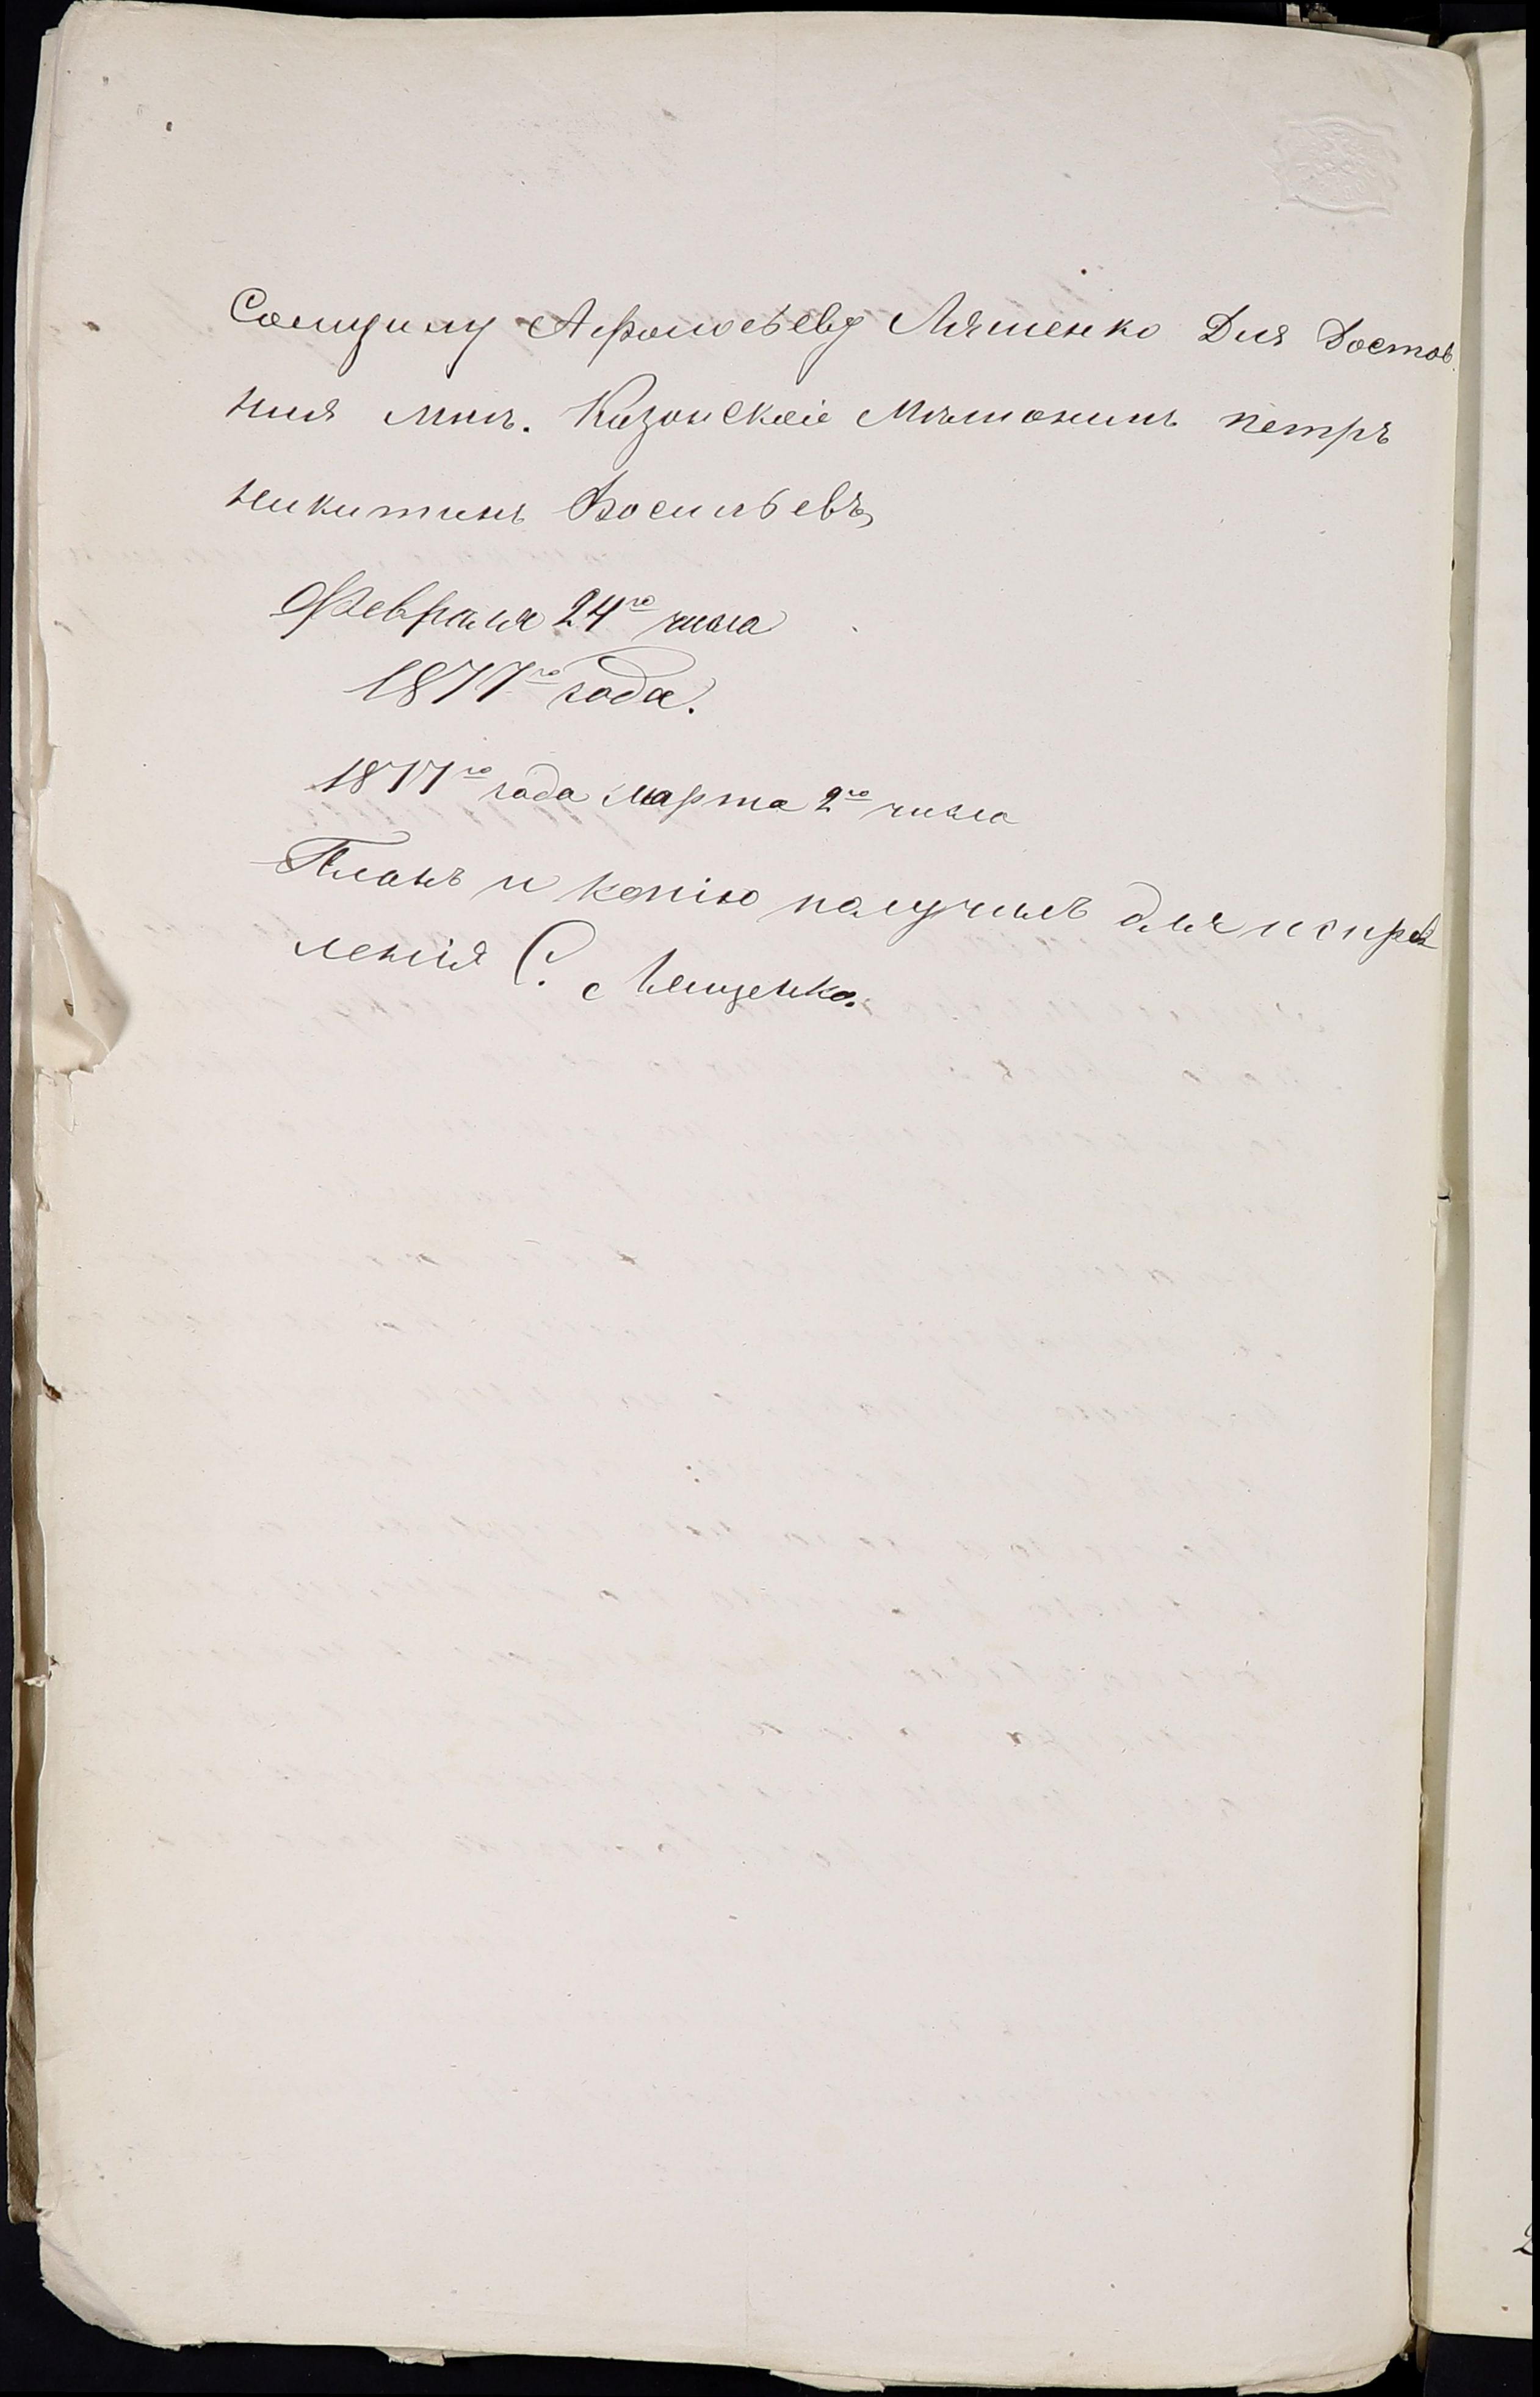 Самуилу Афонасьеву Ляшенко Для Достов
ния мнѣ. Казанскаіе Мѣшонинъ петръ
никитинъ Восильевъ
Февраля 24го числа
1877го года.
1877го года марта 2го числа
Планъ и копію получилъ для исправ
ленія С. Лященко.